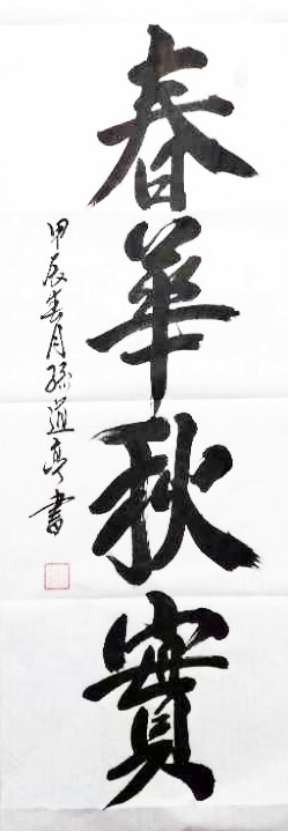 春華秋實
甲辰春月孫道亭書